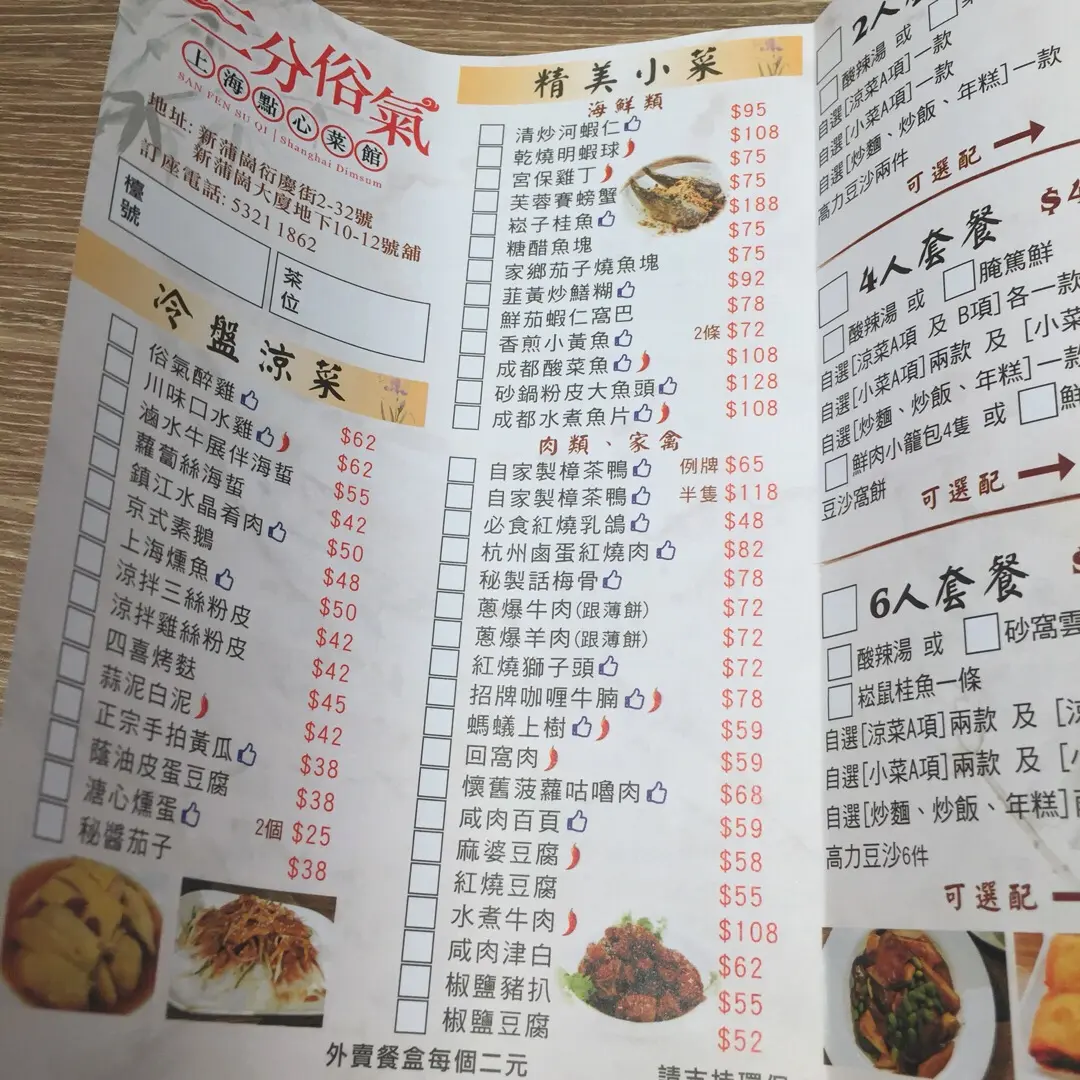 三分俗氣
上海點心菜館
SAN FEN SU QI | Shanghai Dimsum
地址: 新蒲崗衍慶街2-32號
新蒲崗大廈地下10-12號舖
訂座電話: 5321 1862
檯號
茶位
冷盤涼菜
俗氣醉雞 $62
川味口水雞 $62
滷水牛展伴海蜇 $55
蘿蔔絲海蜇 $42
鎮江水晶肴肉 $50
京式素鵝 $48
上海燻魚 $50
涼拌三絲粉皮 $42
涼拌雞絲粉皮 $42
四喜烤麩 $45
蒜泥白泥 $42
正宗手拍黃瓜 $38
蔭油皮蛋豆腐 $38
溏心燻蛋 2個 $25
秘醬茄子 $38
精美小菜
海鮮類
清炒河蝦仁 $95
乾燒明蝦球 $108
宮保雞丁 $75
芙蓉賽螃蟹 $75
崧子桂魚 $188
糖醋魚塊 $75
家鄉茄子燒魚塊 $75
韮黃炒鱔糊 $92
鮮茄蝦仁窩巴 $78
香煎小黃魚 2條 $72
成都酸菜魚 $108
砂鍋粉皮大魚頭 $128
成都水煮魚片 $108
肉類、家禽
自家製樟茶鴨 例牌 $65
自家製樟茶鴨 半隻 $118
必食紅燒乳鴿 $48
杭州鹵蛋紅燒肉 $82
秘製話梅骨 $78
蔥爆牛肉(跟薄餅) $72
蔥爆羊肉(跟薄餅) $72
紅燒獅子頭 $72
招牌咖喱牛腩 $78
螞蟻上樹 $59
回窩肉 $59
懷舊菠蘿咕嚕肉 $68
咸肉百頁 $59
麻婆豆腐 $58
紅燒豆腐 $55
水煮牛肉 $108
咸肉津白 $62
椒鹽豬扒 $55
椒鹽豆腐 $52
外賣餐盒每個二元
請支持環保
2人
酸辣湯 或
自選[涼菜A項]一款
自選[小菜A項]一款
自選[炒麵、炒飯、年糕]一款
高力豆沙兩件
可選配
4人套餐 $4
酸辣湯 或 腌篤鮮
自選[涼菜A項 及 B項]各一款
自選[小菜A項]兩款 及 [小菜
自選[炒麵、炒飯、年糕]一款
鮮肉小籠包4隻 或 鮮
豆沙窩餅
可選配
6人套餐 $
酸辣湯 或 砂窩雲
崧鼠桂魚一條
自選[涼菜A項]兩款 及
自選[小菜A項]兩款 及
自選[炒麵、炒飯、年糕]
高力豆沙6件
可選配